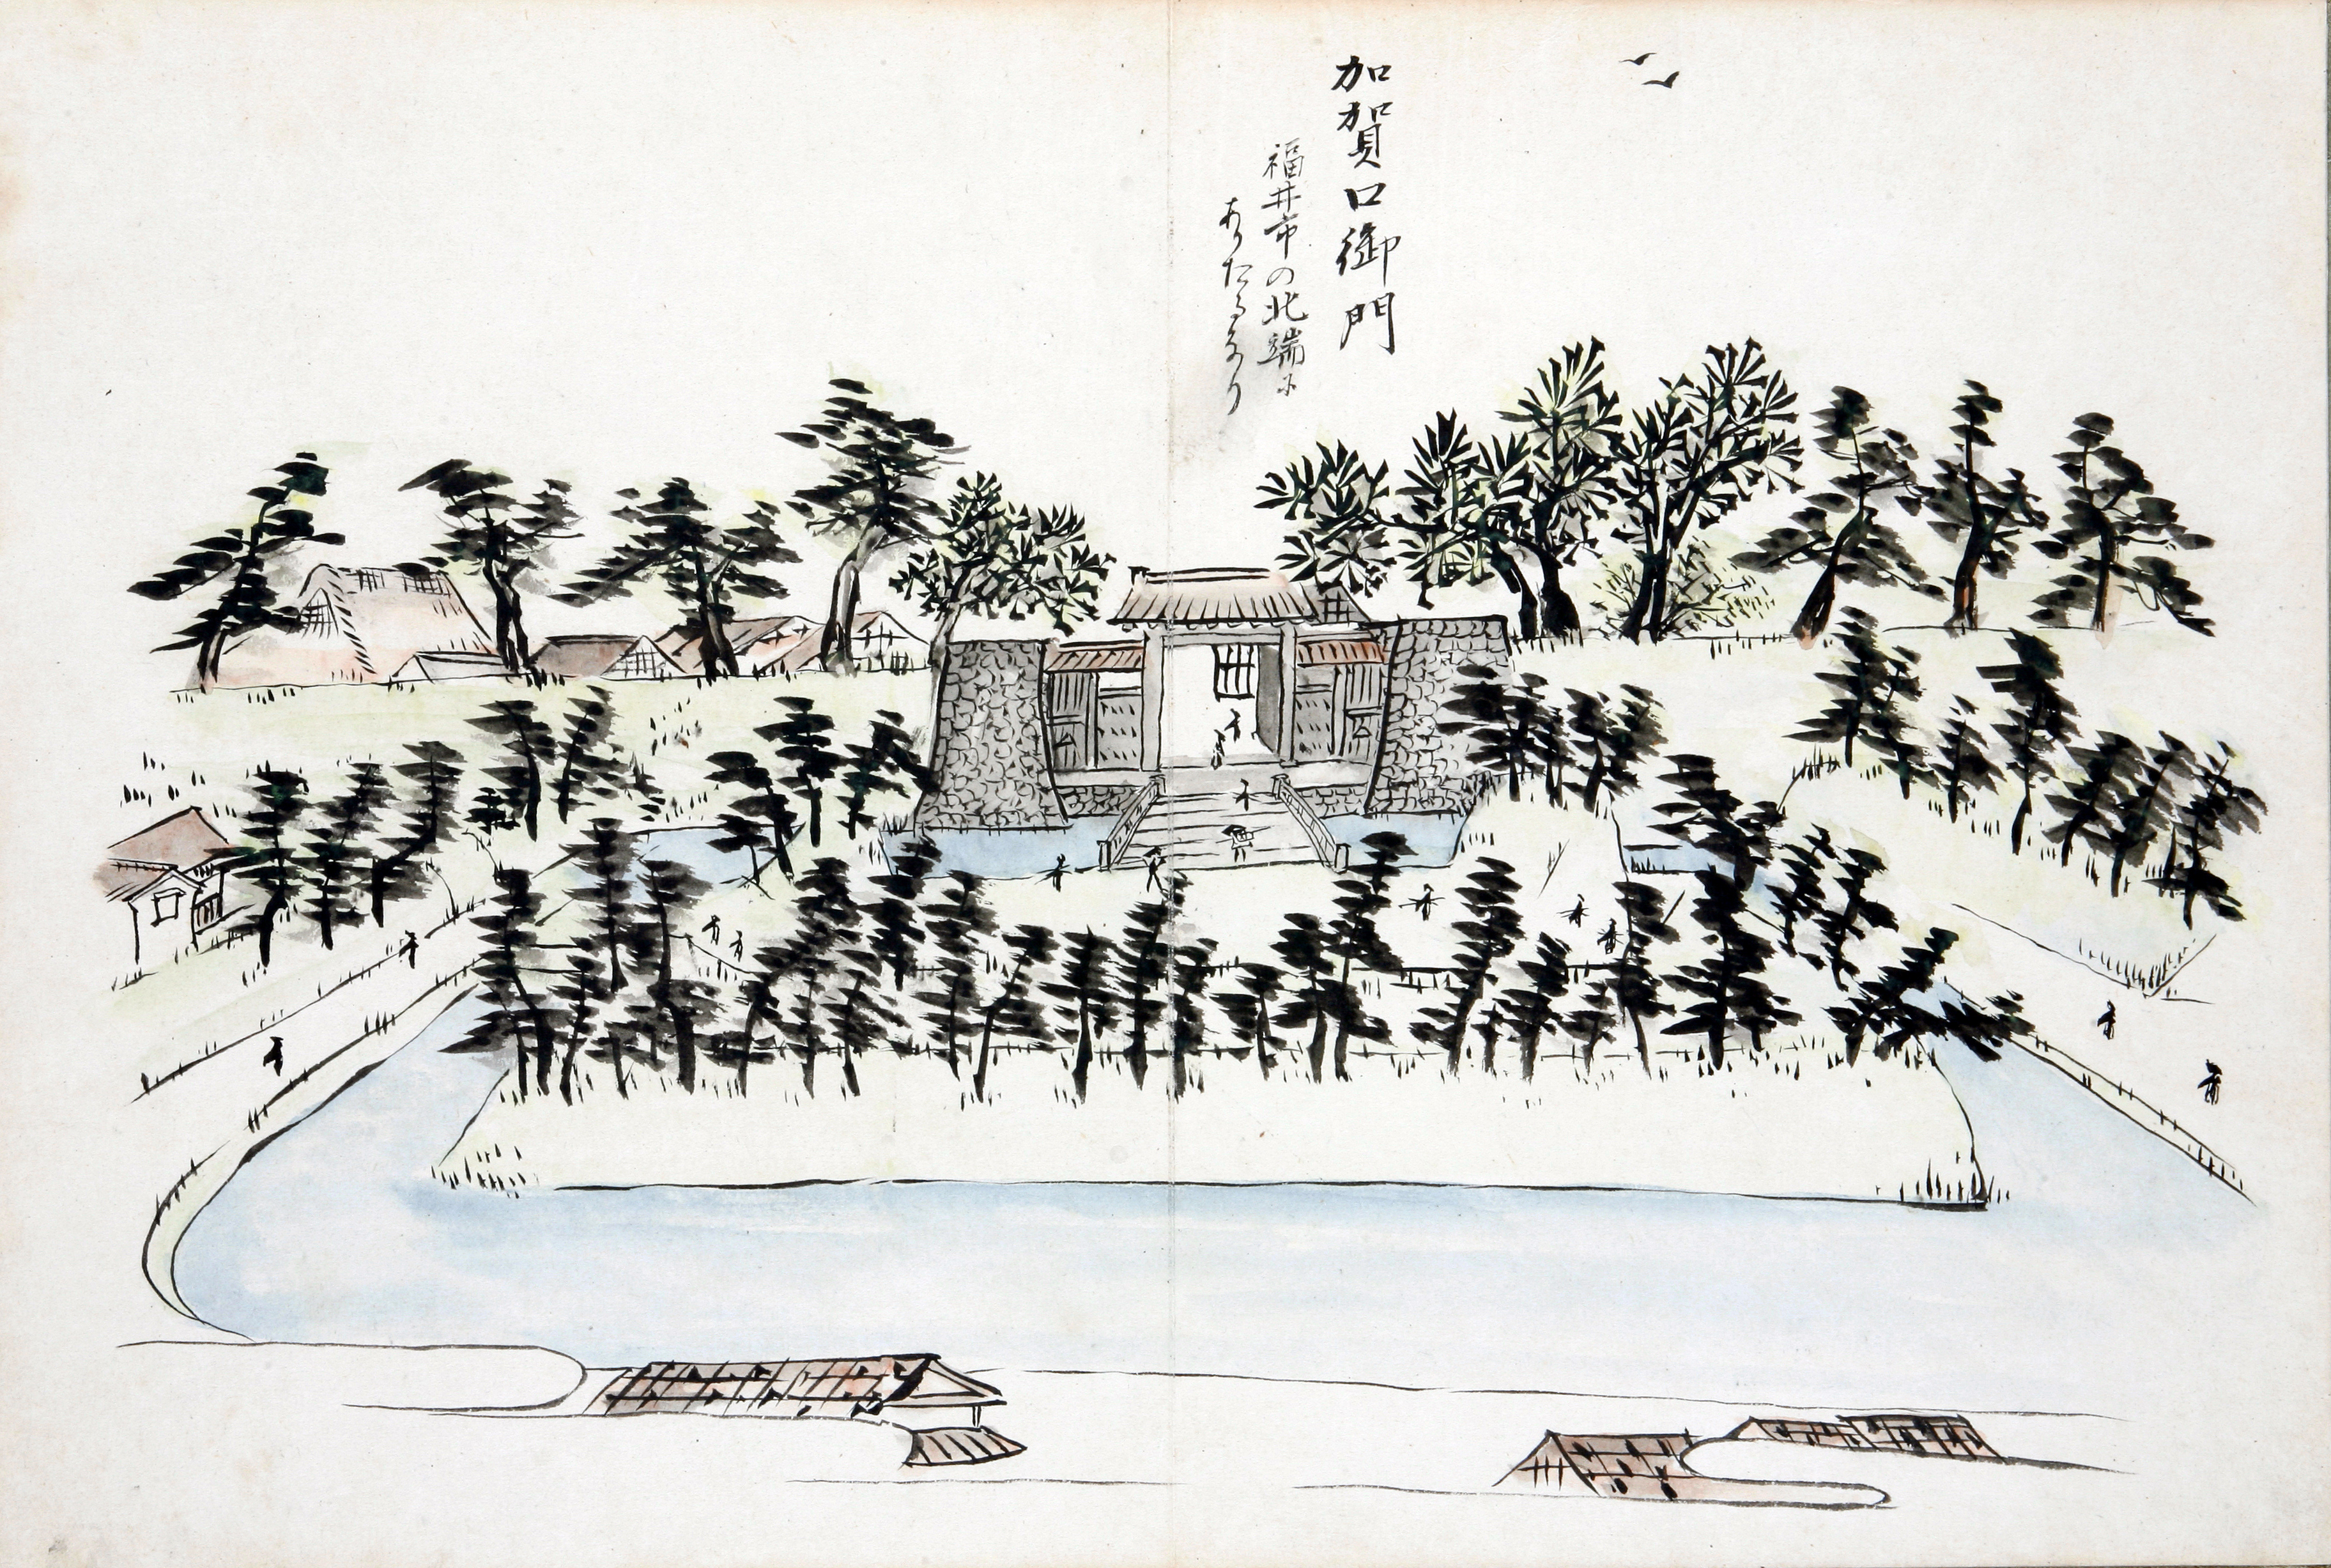 加賀口御門
福井市の北端に
ありたるなり